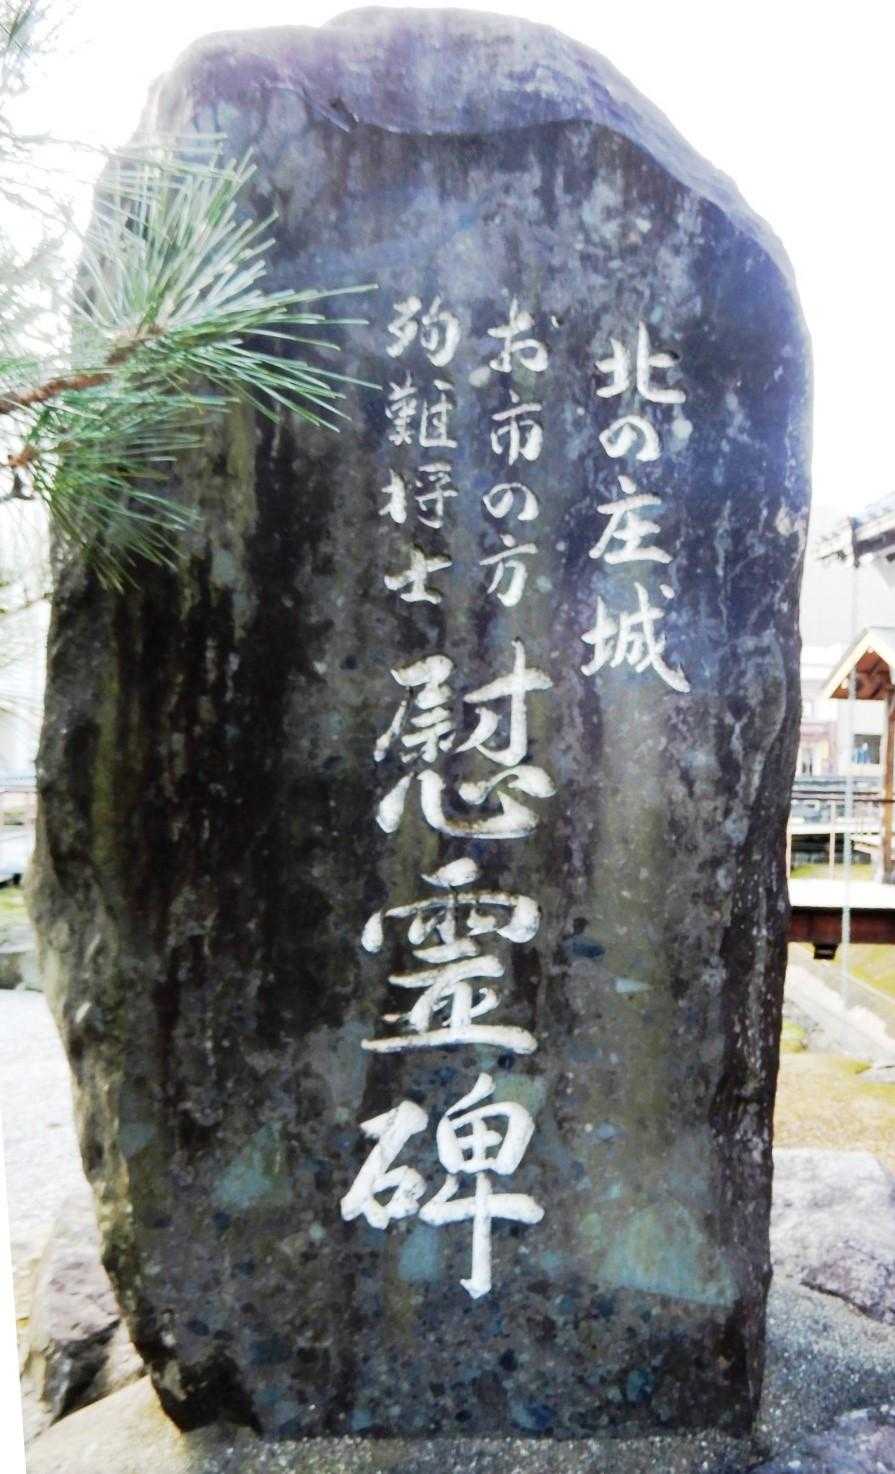 北の庄城
お市の方
殉難将士
慰霊碑